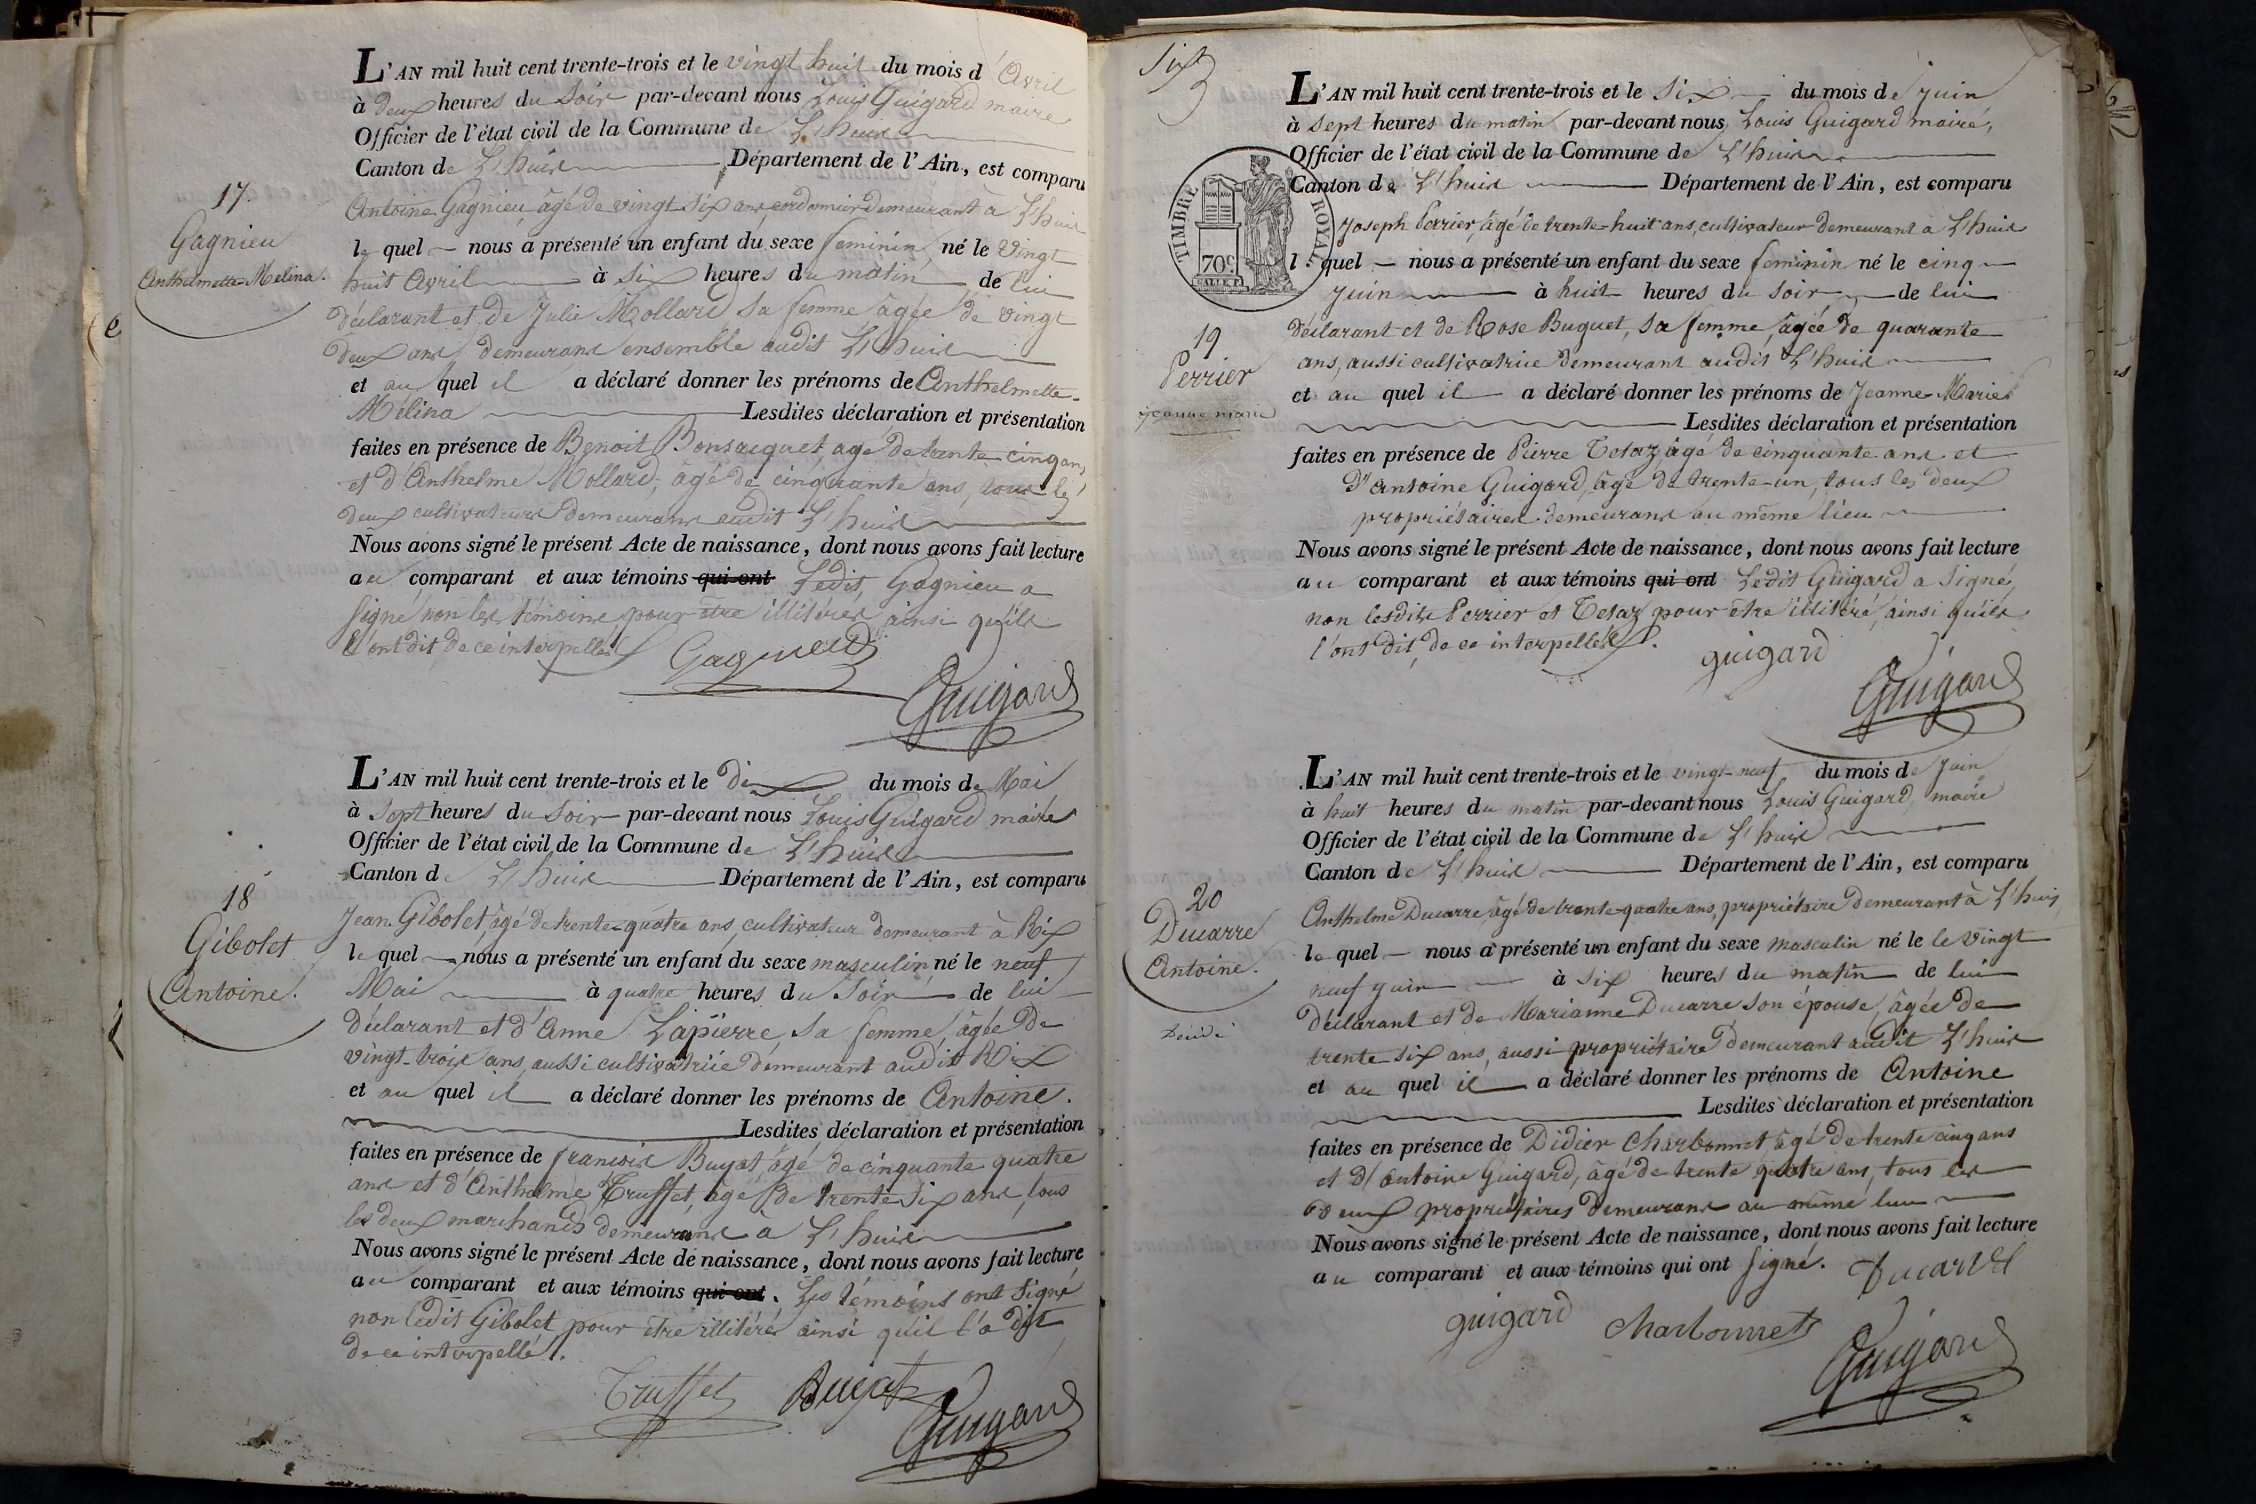 17.
Gagnieu
Anthelmette-Melina.
L'AN mil huit cent trente-trois et le vingt huit du mois d'Avril
à deux heures du soir par-devant nous Louis Guigard maire
Officier de l'état civil de la Commune de L'huis
Canton de L'huis Département de l'Ain, est comparu
Antoine Gagnieu, âgé de vingt six ans, cordonnier demeurant à L'huis
lequel nous a présenté un enfant du sexe feminin né le vingt
huit Avril à six heures du matin de lui
déclarant et de Julie Mollard sa femme âgée de vingt
deux ans demeurans ensemble audit L'huis
et auquel il a déclaré donner les prénoms de Anthelmette-
Mélina Lesdites déclaration et présentation
faites en présence de Benoit Bonsacquet, agé de trente cinq ans,
et d'Anthelme Mollard, âgé de cinquante ans, tous les
deux cultivateurs demeurans audit L'huis
Nous avons signé le présent Acte de naissance, dont nous avons fait lecture
au comparant et aux témoins qui ont Ledit Gagnieu a
signé non les témoins pour être illitérés ainsi qu'ils
l'ont dit de ce interpellés
Gagnieu
Guigard
18
Gibolet
Antoine.
L'AN mil huit cent trente-trois et le dix du mois de Mai
à sept heures du soir par-devant nous Louis Guigard maire
Officier de l'état civil de la Commune de L'huis
Canton de L'huis Département de l'Ain, est comparu
Jean Gibolet, âgé de trente-quatre ans, cultivateur demeurant à Rix
lequel nous a présenté un enfant du sexe masculin né le neuf
Mai à quatre heures du soir de lui
déclarant et d'Anne Lapierre, sa femme, âgée de
vingt-trois ans, aussi cultivatrice demeurant audit Rix
et auquel il a déclaré donner les prénoms de Antoine.
Lesdites déclaration et présentation
faites en présence de françois Buyat, âgé de cinquante quatre
ans et d'Anthelme Truffet, âgé de trente six ans, tous
les deux marchands demeurans à L'huis
Nous avons signé le présent Acte de naissance, dont nous avons fait lecture
au comparant et aux témoins qui ont. Les témoins ont signé
non ledit Gibolet pour être illitéré ainsi qu'il l'a dit
de ce interpellé.
Truffet Buyat
Guigard
Six
TIMBRE ROYAL
70c
19
Perrier
jeanne marie
L'AN mil huit cent trente-trois et le Six du mois de juin
à sept heures du matin par-devant nous Louis Guigard maire,
Officier de l'état civil de la Commune de L'huis
Canton de L'huis Département de l'Ain, est comparu
Joseph Perrier, âgé de trente-huit ans, cultivateur demeurant a L'huis
lequel nous a présenté un enfant du sexe feminin né le cinq
juin à huit heures du soir de lui
déclarant et de Rose Buguet, sa femme, âgée de quarante
ans, aussi cultivatrice demeurant audit L'huis
et au quel il a déclaré donner les prénoms de Jeanne-Marie
Lesdites déclaration et présentation
faites en présence de Pierre Tetaz âgé de cinquante ans et
d'Antoine Guigard, âgé de trente-un, tous les deux
propriétaires demeurans au même lieu
Nous avons signé le présent Acte de naissance, dont nous avons fait lecture
au comparant et aux témoins qui ont Ledit Guigard a signé
non lesdits Perrier et Tetaz pour être illitéré, ainsi qu'ils
l'ont dit, de ce interpellés.
guigard
Guigard
20
Ducarre
Antoine.
L'AN mil huit cent trente-trois et le vingt-neuf du mois de juin
à huit heures du matin par-devant nous Louis Guigard, maire
Officier de l'état civil de la Commune de L'huis
Canton de L'huis Département de l'Ain, est comparu
Anthelme Ducarre, âgé de trente-quatre ans, propriétaire demeurant à L'huis,
lequel nous a présenté un enfant du sexe masculin né le le vingt
neuf juin à six heures du matin de lui
déclarant et de Marianne Ducarre son épouse, âgée de
trente six ans, aussi propriétaire demeurant audit L'huis
et au quel il a déclaré donner les prénoms de Antoine
Lesdites déclaration et présentation
faites en présence de Didier Charbonnet âgé de trente cinq ans
et d'Antoine Guigard, âgé de trente quatre ans, tous les
deux propriétaires demeurans au même lieu
Nous avons signé le présent Acte de naissance, dont nous avons fait lecture
au comparant et aux témoins qui ont signé. Ducarre
guigard Charbonnet
Guigard